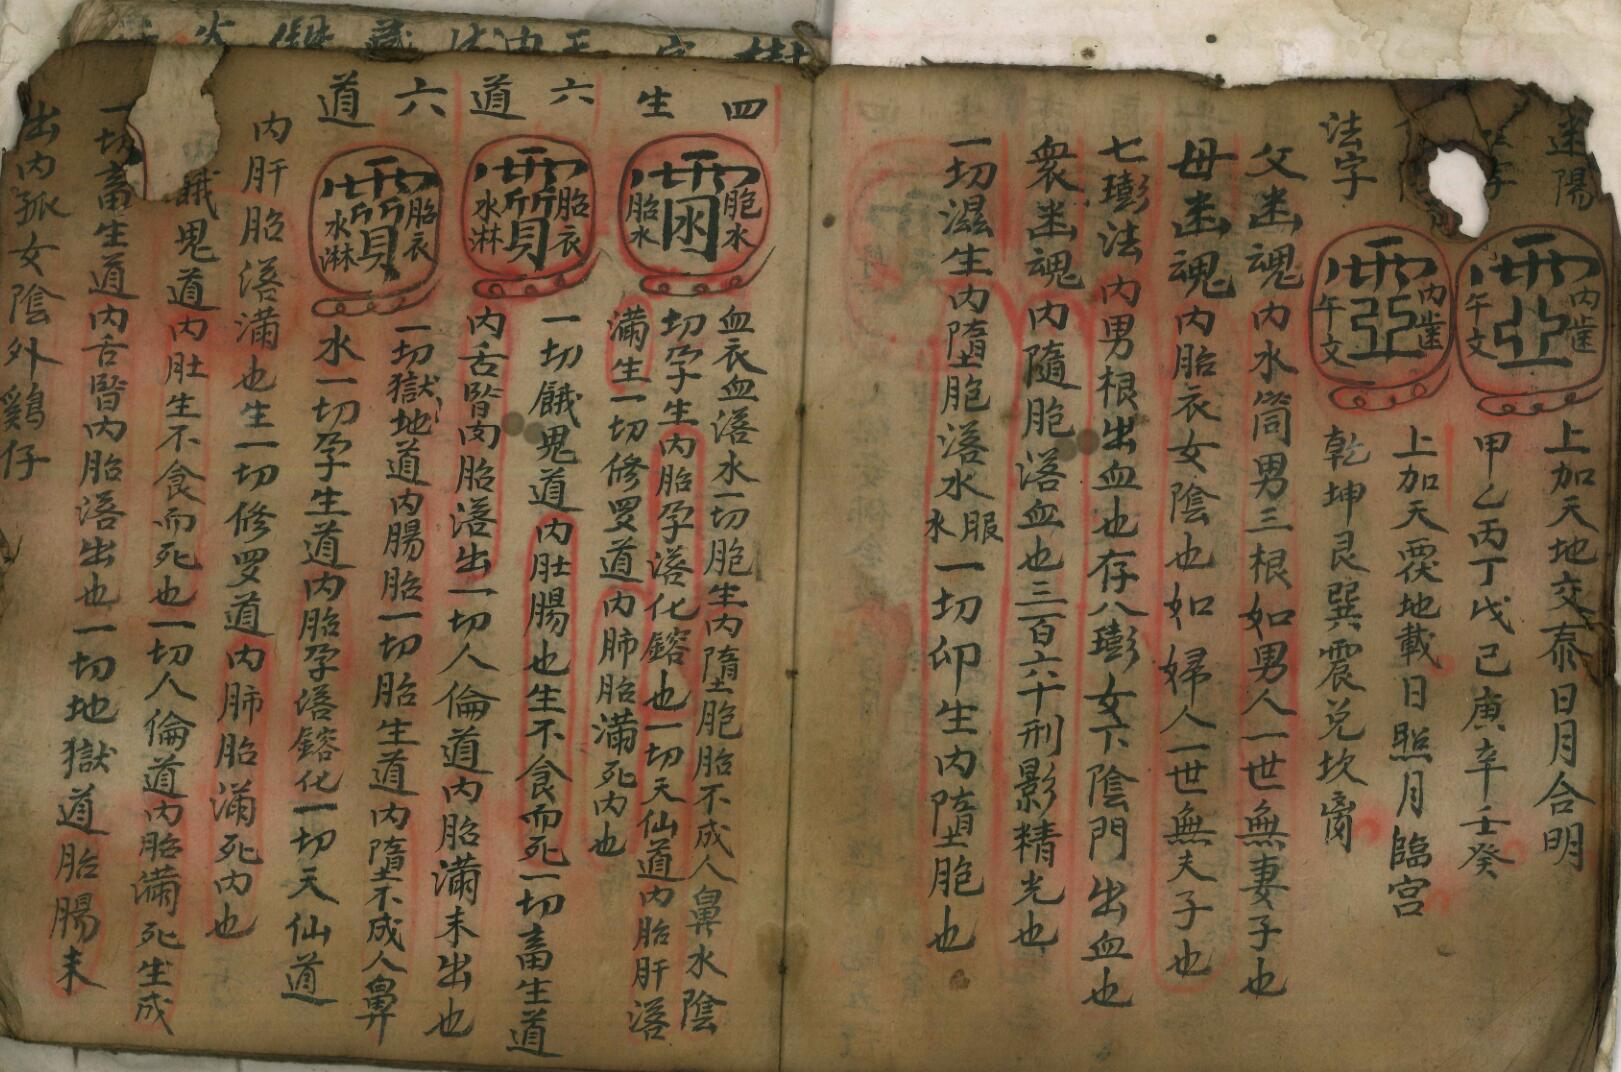 迷陽
上加天地交泰日月合明
法字
甲乙丙丁戊己庚辛壬癸
內歯
午文
上加天覆地載日照月臨宮
法字
內歯
午文
乾坤艮巽震兌坎离
父幽魂內水筒男三根如男人一世無妻子也
母幽魂內胎衣女陰也如婦人一世無夫子也
七膨法內男根出血也存八膨女下陰門出血也
衆幽魂內隨胞落血也三百六十刑影精光也
一切滋生內墮胞落水
水服
一切卵生內墮胞也
四生
胞水
胎水
血衣血落水一切胞生內墮胞胎不成人鼻水陰
切孕生內胎孕落化鎔也一切天仙道內胎肝落
滿生一切修罗道內肺胎滿死內也
六道
胎衣
水淋
一切餓鬼道內肚腸也生不食而死一切畜生道
內舌皆肉胎落出一切人倫道內胎滿未出也
六道
胎衣
水淋
一切獄地道內腸胎一切胎生道內墮不成人鼻
水一切孕生道內胎孕落鎔化一切天仙道
內肝胎落滿也生一切修罗道內肺胎滿死內也
餓鬼道內肚生不食而死也一切人倫道內胎滿死生成
一切畜生道內舌皆內胎落出也一切地獄道胎腸未
出內孤女陰外鷄仔